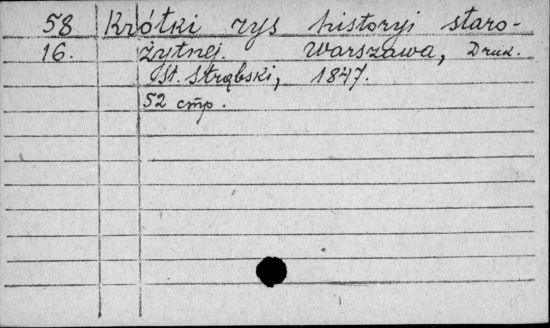 58 Krótki rys historyi staro-
16. żytnej. Warszawa, Druk.
St. Strąbski, 1847.
52 стр.